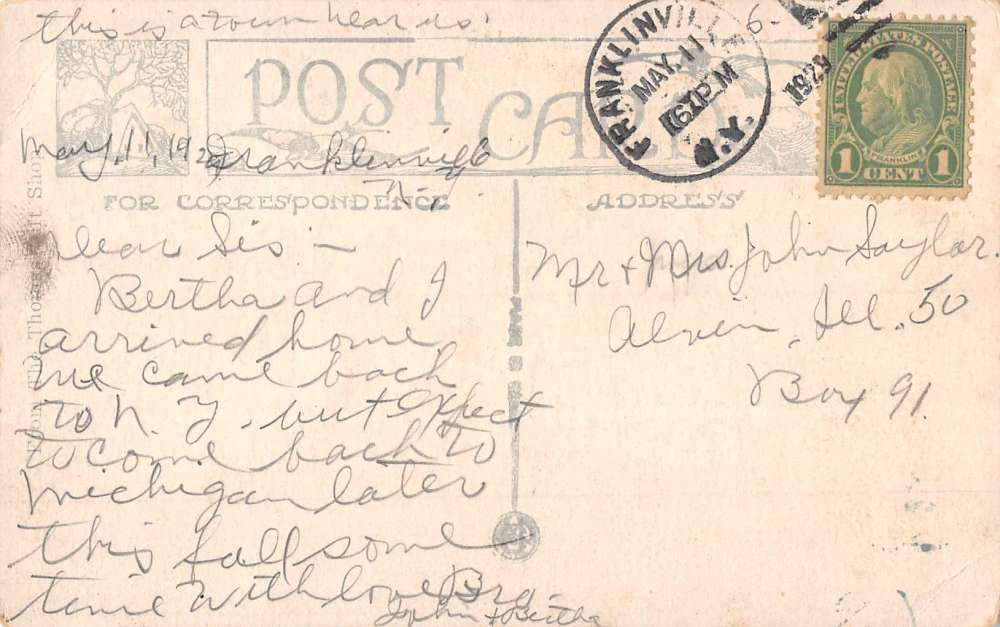 this is a town near us.
POST CARD
FRANKLINVILLE
MAY. 11
12 M
N.Y.
1929
UNITED STATES POSTAGE
FRANKLIN
1 CENT 1
May, 11, 1929 Franklinville
N.
FOR CORRESPONDENCE
ADDRESS
Dear Sis –
Bertha and I
arrived home
we came back
to N. Y. but expect
to come back to
Michigan later
this fall some
time With love Bro.
John + Bertha
Mr + Mrs. John Saylor.
Alvin, Ill. 50
Box 91.
From The Thompson Gift Shop